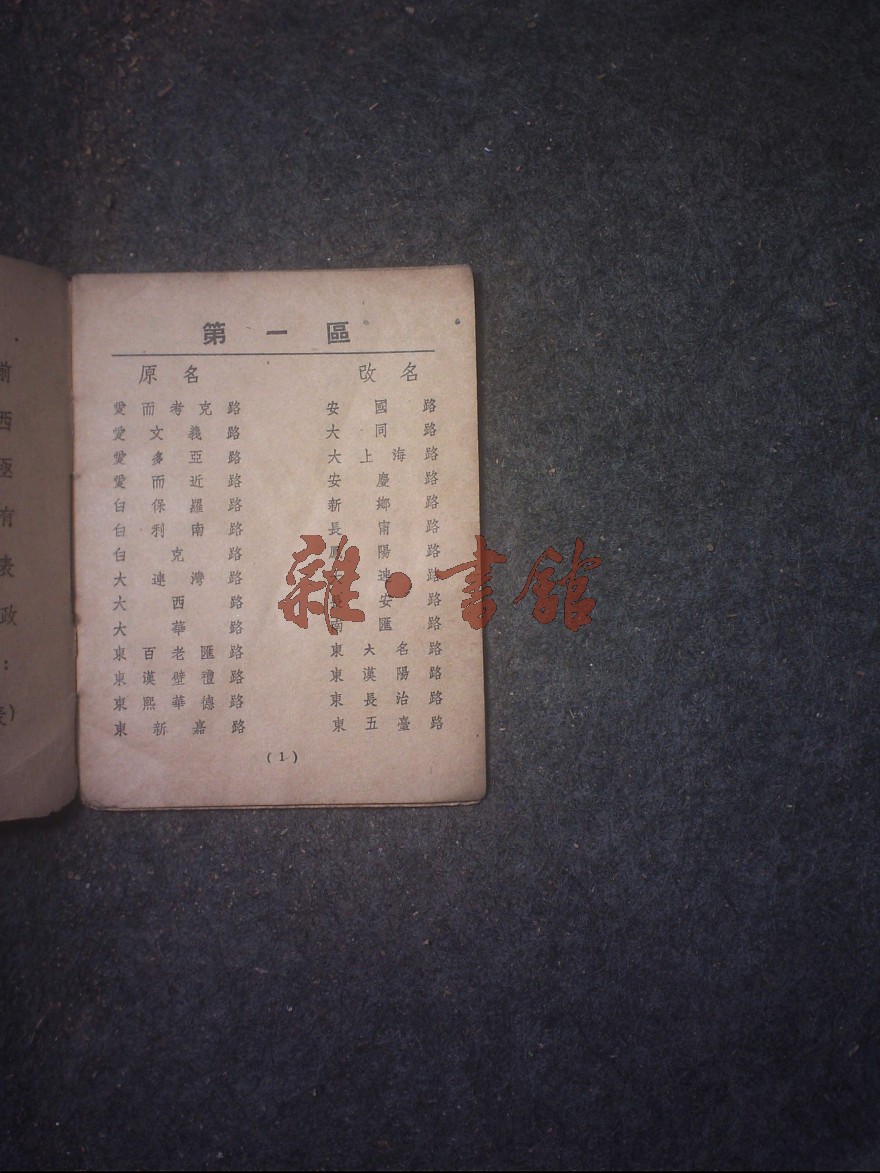 第一區
原名 改名
愛而考克路 安國路
愛文義路 大同路
愛多亞路 大上海路
愛而近路 安慶路
白保羅路 新鄉路
白利南路 長甯路
白克路 鳳陽路
大連灣路 連路
大西路 安路
大華路 南匯路
東百老匯路 東大名路
東漢壁禮路 東漢陽路
東熙華德路 東長治路
東新嘉路 東五臺路
(1)
雜·書館